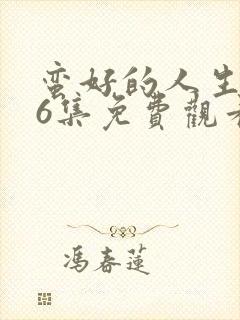 蛮好的人生
6集免費觀
馮春蓮